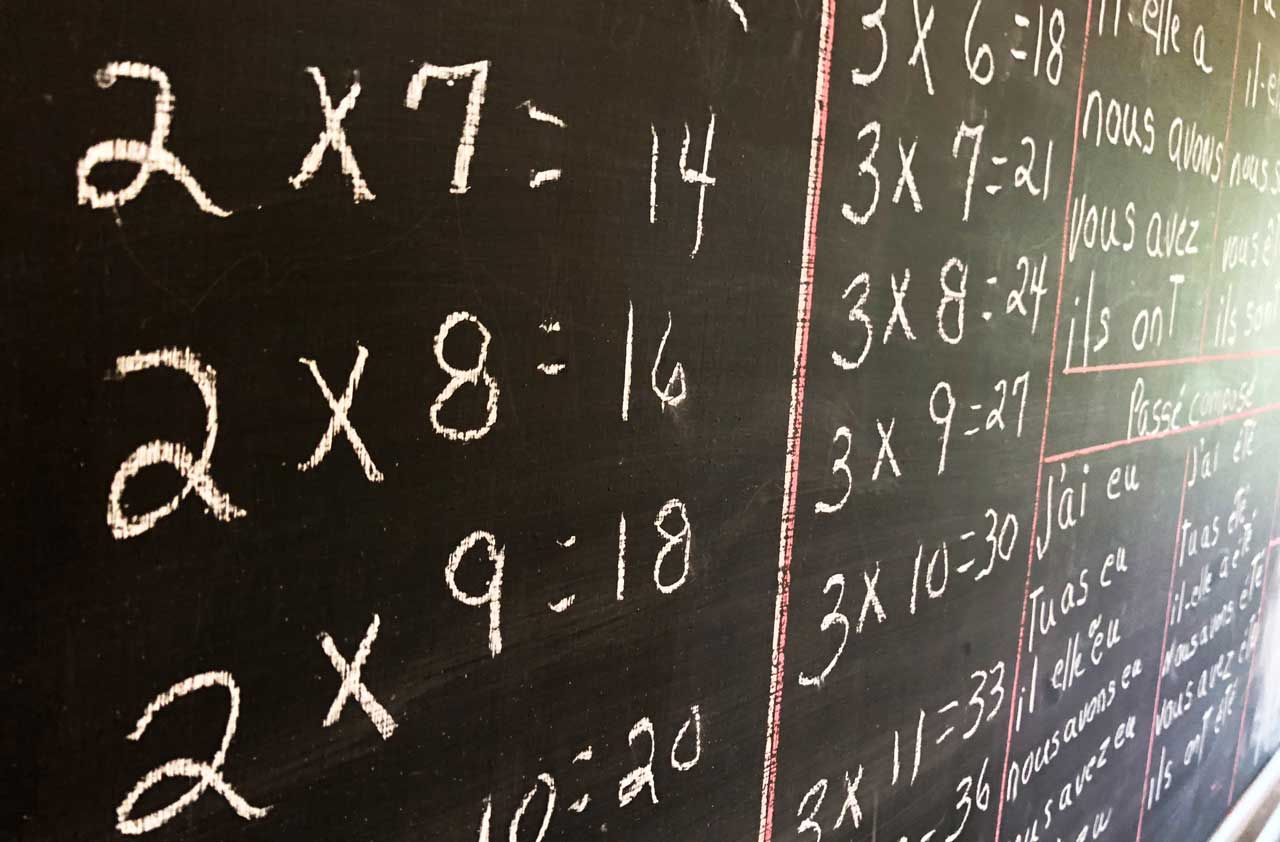 2 x 7 = 14
2 x 8 = 16
2 x 9 = 18
10 = 20
3 x 6 = 18
3 x 7 = 21
3 x 8 = 24
3 x 9 = 27
3 x 10 = 30
3 x 11 = 33
= 36
il-elle a
nous avons
vous avez
ils ont
nous
ils
Passé composé
J'ai eu
Tu as eu
il elle eu
nous avons eu
avez eu
J'ai été
Tu as été
il-elle a été
nous avons été
vous avez été
ils ont été